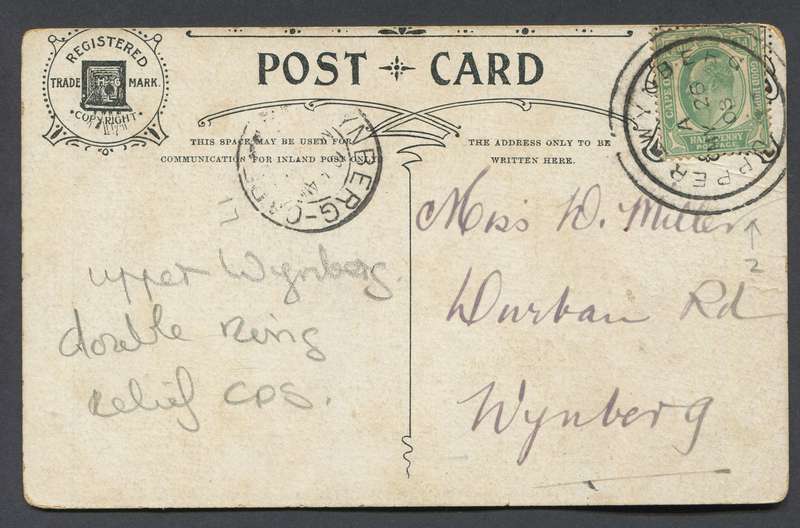 REGISTERED
TRADE MARK.
COPYRIGHT
POST CARD
THIS SPACE MAY BE USED FOR
COMMUNICATION FOR INLAND POST ONLY
THE ADDRESS ONLY TO BE
WRITTEN HERE.
WYNBERG
UPPER
A
26
08
HALFPENNY
YNBERG-CAPE
Miss D. Miller
Durban Rd
Wynberg
2
upper Wynberg.
double ring
relief CDS.